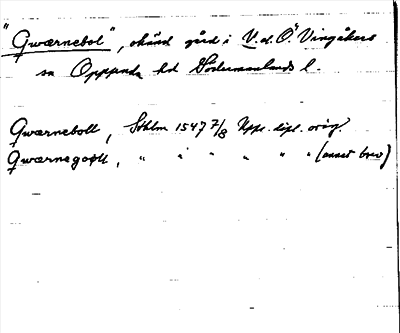 "Qwærnebol", okänd gård i V. d. Ö. Vingåkers
sn Oppunda hd Södermanlands l.
Qwærneboll, Sthlm 1547 7/8 Uppl. dipl. orig.
Qwærnegoɸll, " " " " " (annat brev)